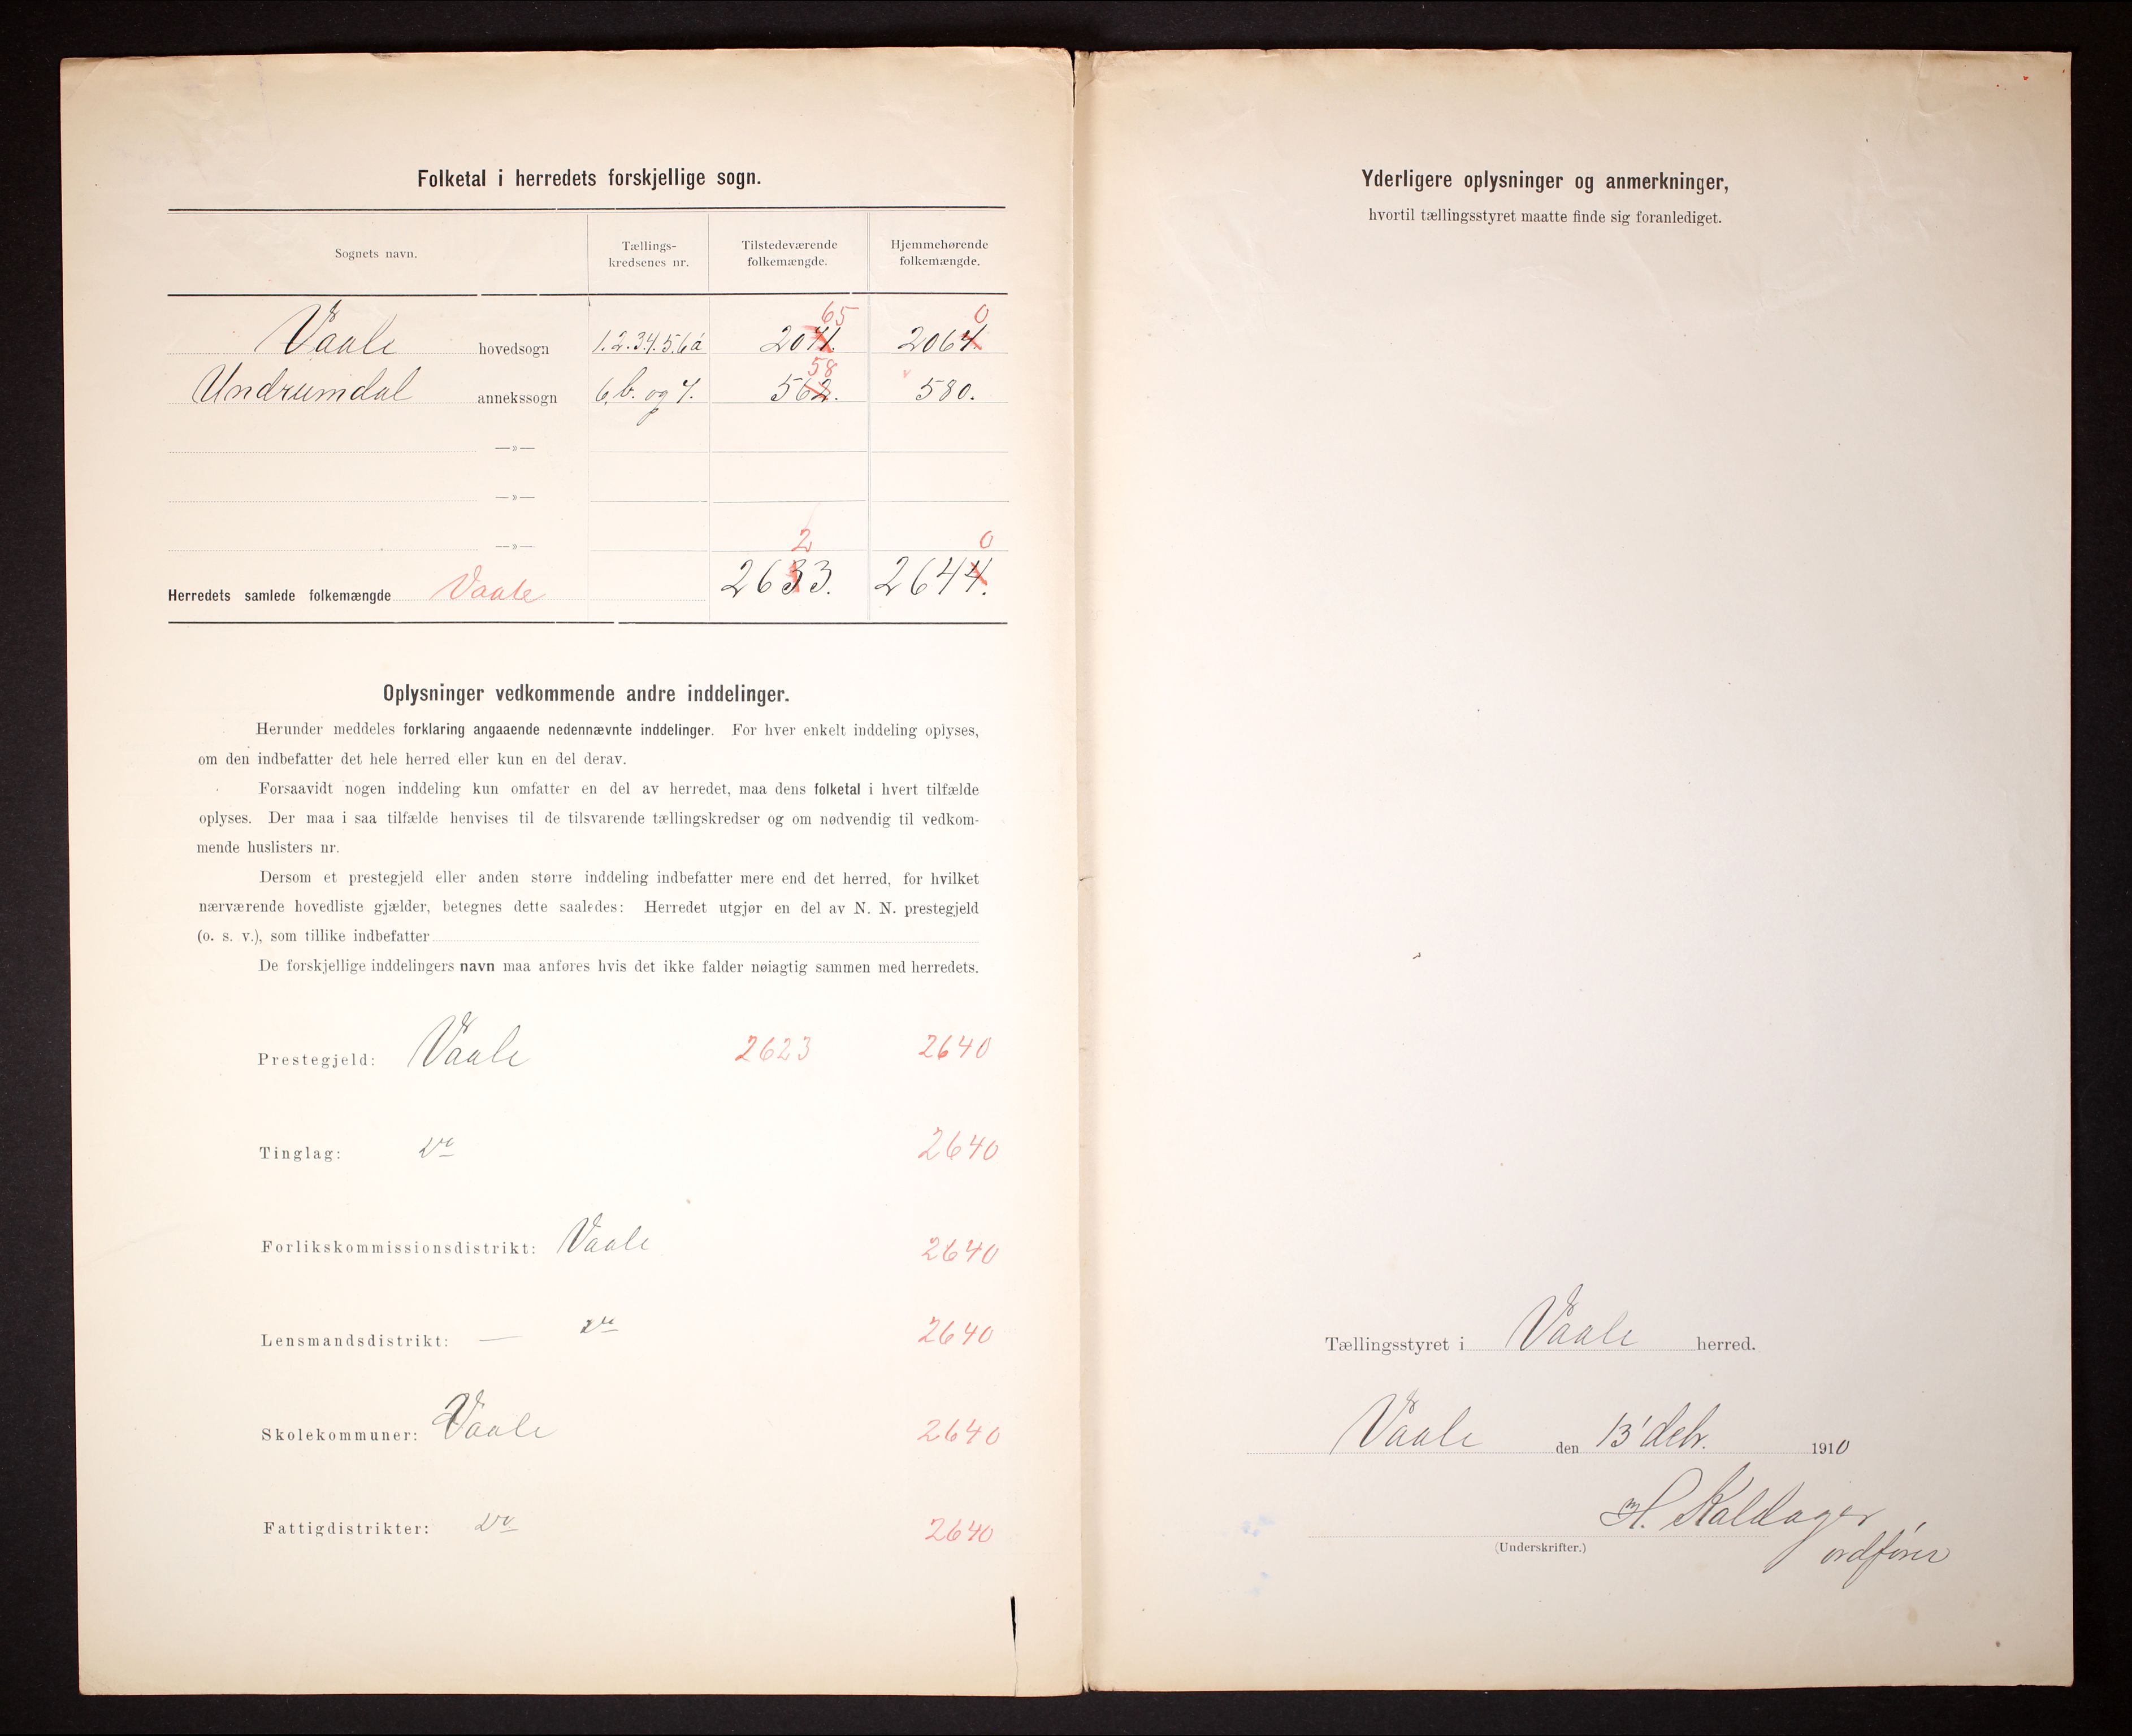 Folketal i herredets forskjellige sogn.
Sognets navn.
Tællings-
kredsenes nr.
Tilstedeværende
folkemængde.
Hjemmehørende
folkemængde.
65 0
Vaale hovedsogn 1.2.3.4.5.6a 2071. 2064.
58
Undrumdal annekssogn 6.b. og 7. 562. 580.
—»—
—»—
—»—
2 0
Herredets samlede folkemængde Vaale 2633. 2644.
Oplysninger vedkommende andre inddelinger.
Herunder meddeles forklaring angaaende nedennævnte inddelinger. For hver enkelt inddeling oplyses,
om den indbefatter det hele herred eller kun en del derav.
Forsaavidt nogen inddeling kun omfatter en del av herredet, maa dens folketal i hvert tilfælde
oplyses. Der maa i saa tilfælde henvises til de tilsvarende tællingskredser og om nødvendig til vedkom-
mende huslisters nr.
Dersom et prestegjeld eller anden større inddeling indbefatter mere end det herred, for hvilket
nærværende hovedliste gjælder, betegnes dette saaledes: Herredet utgjør en del av N. N. prestegjeld
(o. s. v.), som tillike indbefatter
De forskjellige inddelingers navn maa anføres hvis det ikke falder nøiagtig sammen med herredets.
Prestegjeld: Vaale 2623 2640
Tinglag: Do 2640
Forlikskommissionsdistrikt: Vaale 2640
Lensmandsdistrikt: — Do 2640
Skolekommuner: Vaale 2640
Fattigdistrikter: Do 2640
Yderligere oplysninger og anmerkninger,
hvortil tællingsstyret maatte finde sig foranlediget.
Tællingsstyret i Vaale herred.
Vaale den 13' debr. 1910
H. Kaldager
ordfører
(Underskrifter.)